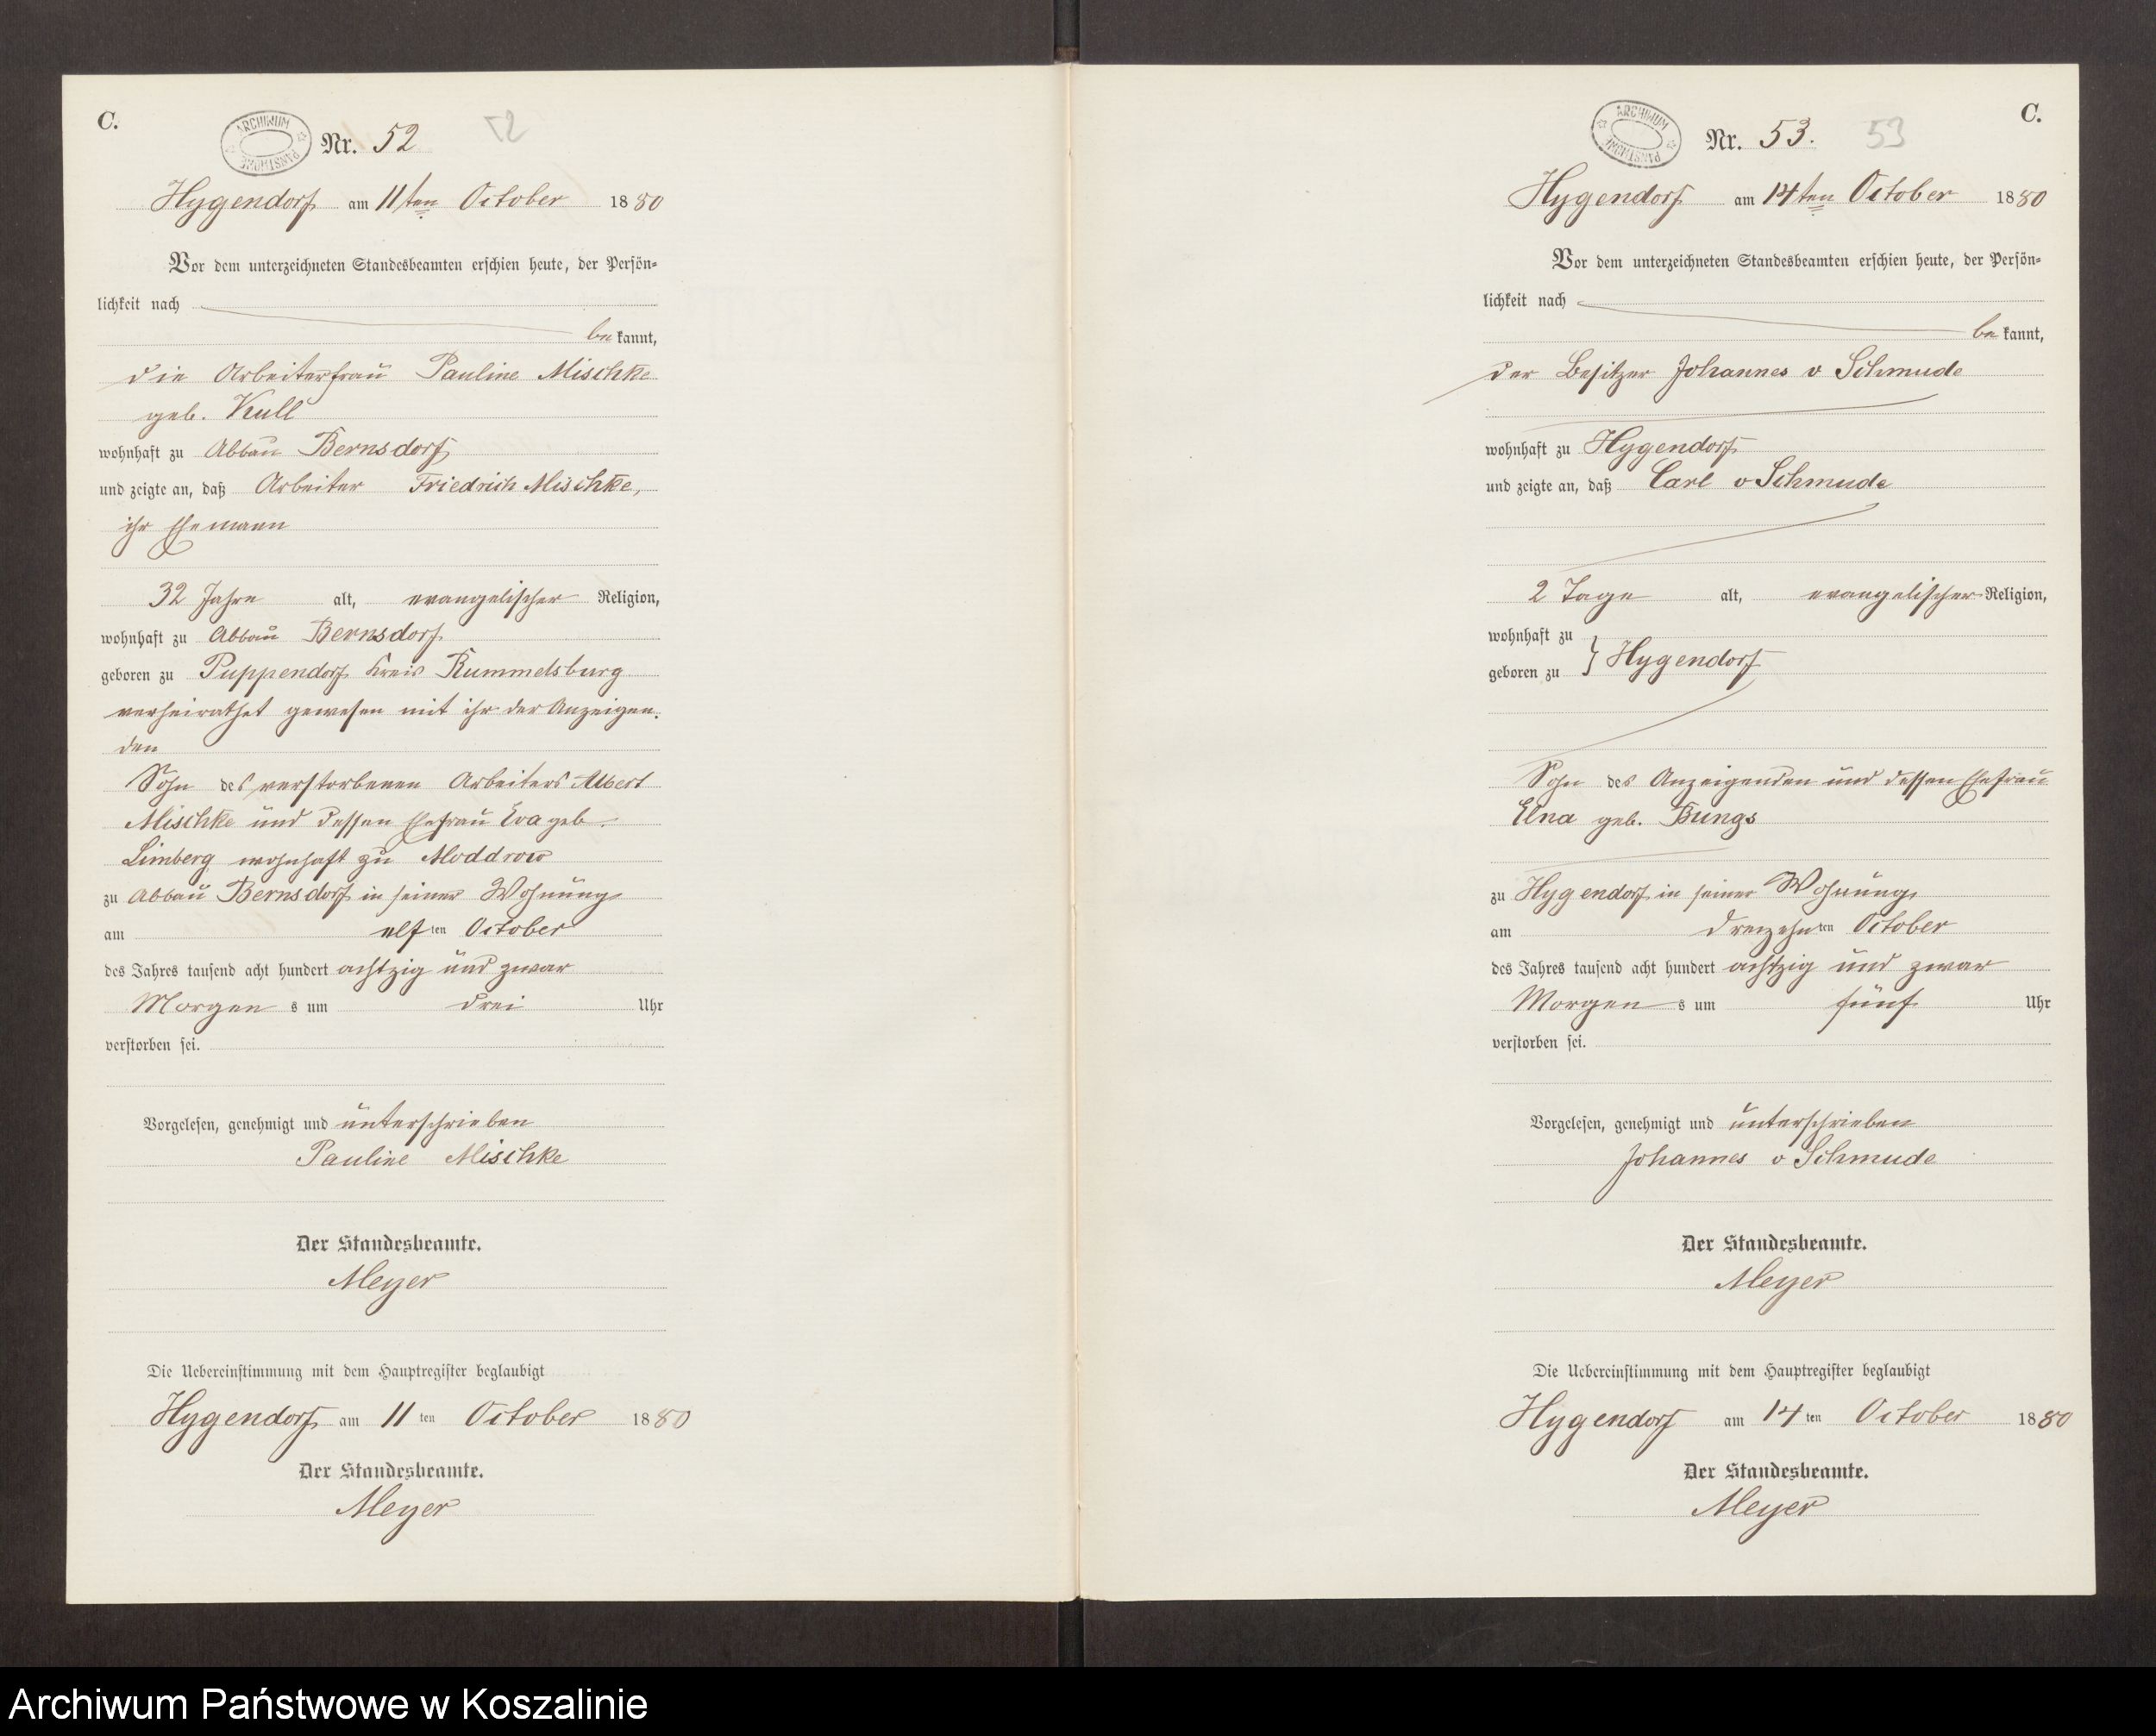 C.
ARCHIWUM PAŃSTWOWE
Nr. 52
52
Hygendorf am 11ten October 1880
Vor dem unterzeichneten Standesbeamten erschien heute, der Persön-
lichkeit nach
bekannt,
die Arbeiterfrau Pauline Mischke
geb. Kull
wohnhaft zu Abbau Bernsdorf
und zeigte an, daß Arbeiter Friedrich Mischke,
ihr Ehemann
32 Jahre alt, evangelischer Religion,
wohnhaft zu Abbau Bernsdorf
geboren zu Puppendorf Kreis Rummelsburg
verheirathet gewesen mit ihr der Anzeigen-
den
Sohn des verstorbenen Arbeiters Albert
Mischke und dessen Ehefrau Eva geb.
Limberg wohnhaft zu Moddrow
zu Abbau Bernsdorf in seiner Wohnung
am elften October
des Jahres tausend acht hundert achtzig und zwar
Morgens um drei Uhr
verstorben sei.
Vorgelesen, genehmigt und unterschrieben
Pauline Mischke
Der Standesbeamte.
Meyer
Die Uebereinstimmung mit dem Hauptregister beglaubigt
Hygendorf am 11ten October 1880
Der Standesbeamte.
Meyer
C.
ARCHIWUM PAŃSTWOWE
Nr. 53.
53
Hygendorf am 14ten October 1880
Vor dem unterzeichneten Standesbeamten erschien heute, der Persön-
lichkeit nach
bekannt,
der Besitzer Johannes v Schmude
wohnhaft zu Hygendorf
und zeigte an, daß Carl v Schmude
2 Tage alt, evangelischer Religion,
wohnhaft zu
geboren zu } Hygendorf
Sohn des Anzeigenden und dessen Ehefrau
Elna geb. Bungs
zu Hygendorf in seiner Wohnung
am dreizehnten October
des Jahres tausend acht hundert achtzig und zwar
Morgens um fünf Uhr
verstorben sei.
Vorgelesen, genehmigt und unterschrieben
Johannes v Schmude
Der Standesbeamte.
Meyer
Die Uebereinstimmung mit dem Hauptregister beglaubigt
Hygendorf am 14ten October 1880
Der Standesbeamte.
Meyer
Archiwum Państwowe w Koszalinie